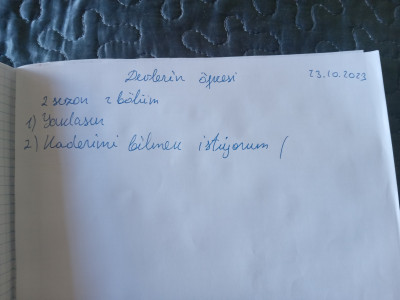 Devlerin öfkesi 23.10.2023
2 sezon 2 bölüm
1) Yavlasın
2) Kaderimi bilmek istiyorum (